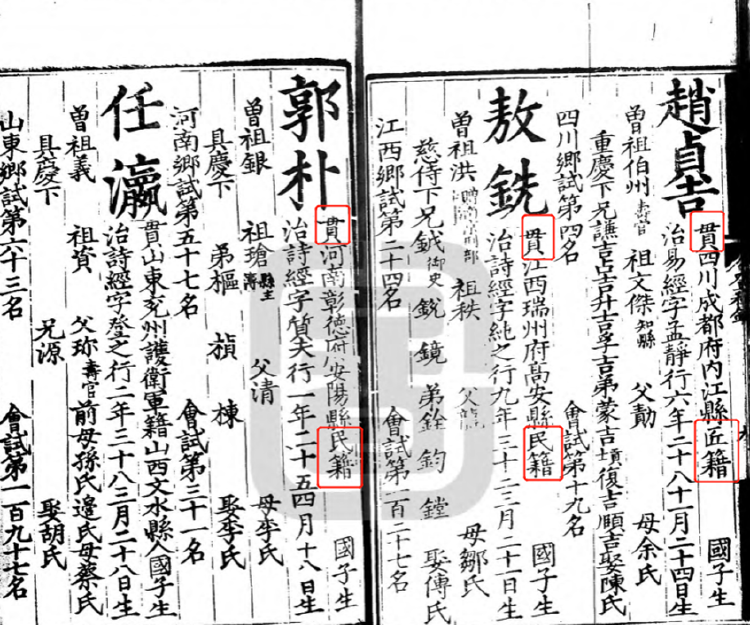 趙貞吉
貫四川成都府内江縣匠籍 國子生
治易經字孟靜行六年二十八十一月二十四日生
曾祖伯州壽官 祖文傑知縣 父勣 母余氏
重慶下兄謙吉 弟蒙吉 復吉 頤吉娶陳氏
四川鄉試第四名 會試第十九名
敖銑
貫江西瑞州府高安縣民籍 國子生
治詩經字純之行九年三十二三月二十一日生
曾祖洪 祖秩 父 母鄒氏
慈侍下兄鉞御史 銳 鏡 弟銓 鈞 鏜 娶傅氏
江西鄉試第二十四名 會試第一百二十七名
郭朴
貫河南彰德府安陽縣民籍 國子生
治詩經字質夫行一年二十五四月十八日生
曾祖銀 祖瑲 父清 母李氏
具慶下 弟樞 楨 棟 娶李氏
河南鄉試第五十七名 會試第三十一名
任瀛
貫山東兖州護衛軍籍山西文水縣人國子生
治詩經字登之行二年三十八三月二十八日生
曾祖義 祖資 父珎壽官 前母孫氏邉氏母蔡氏
具慶下 兄源 娶胡氏
山東鄉試第六十三名 會試第一百九十七名